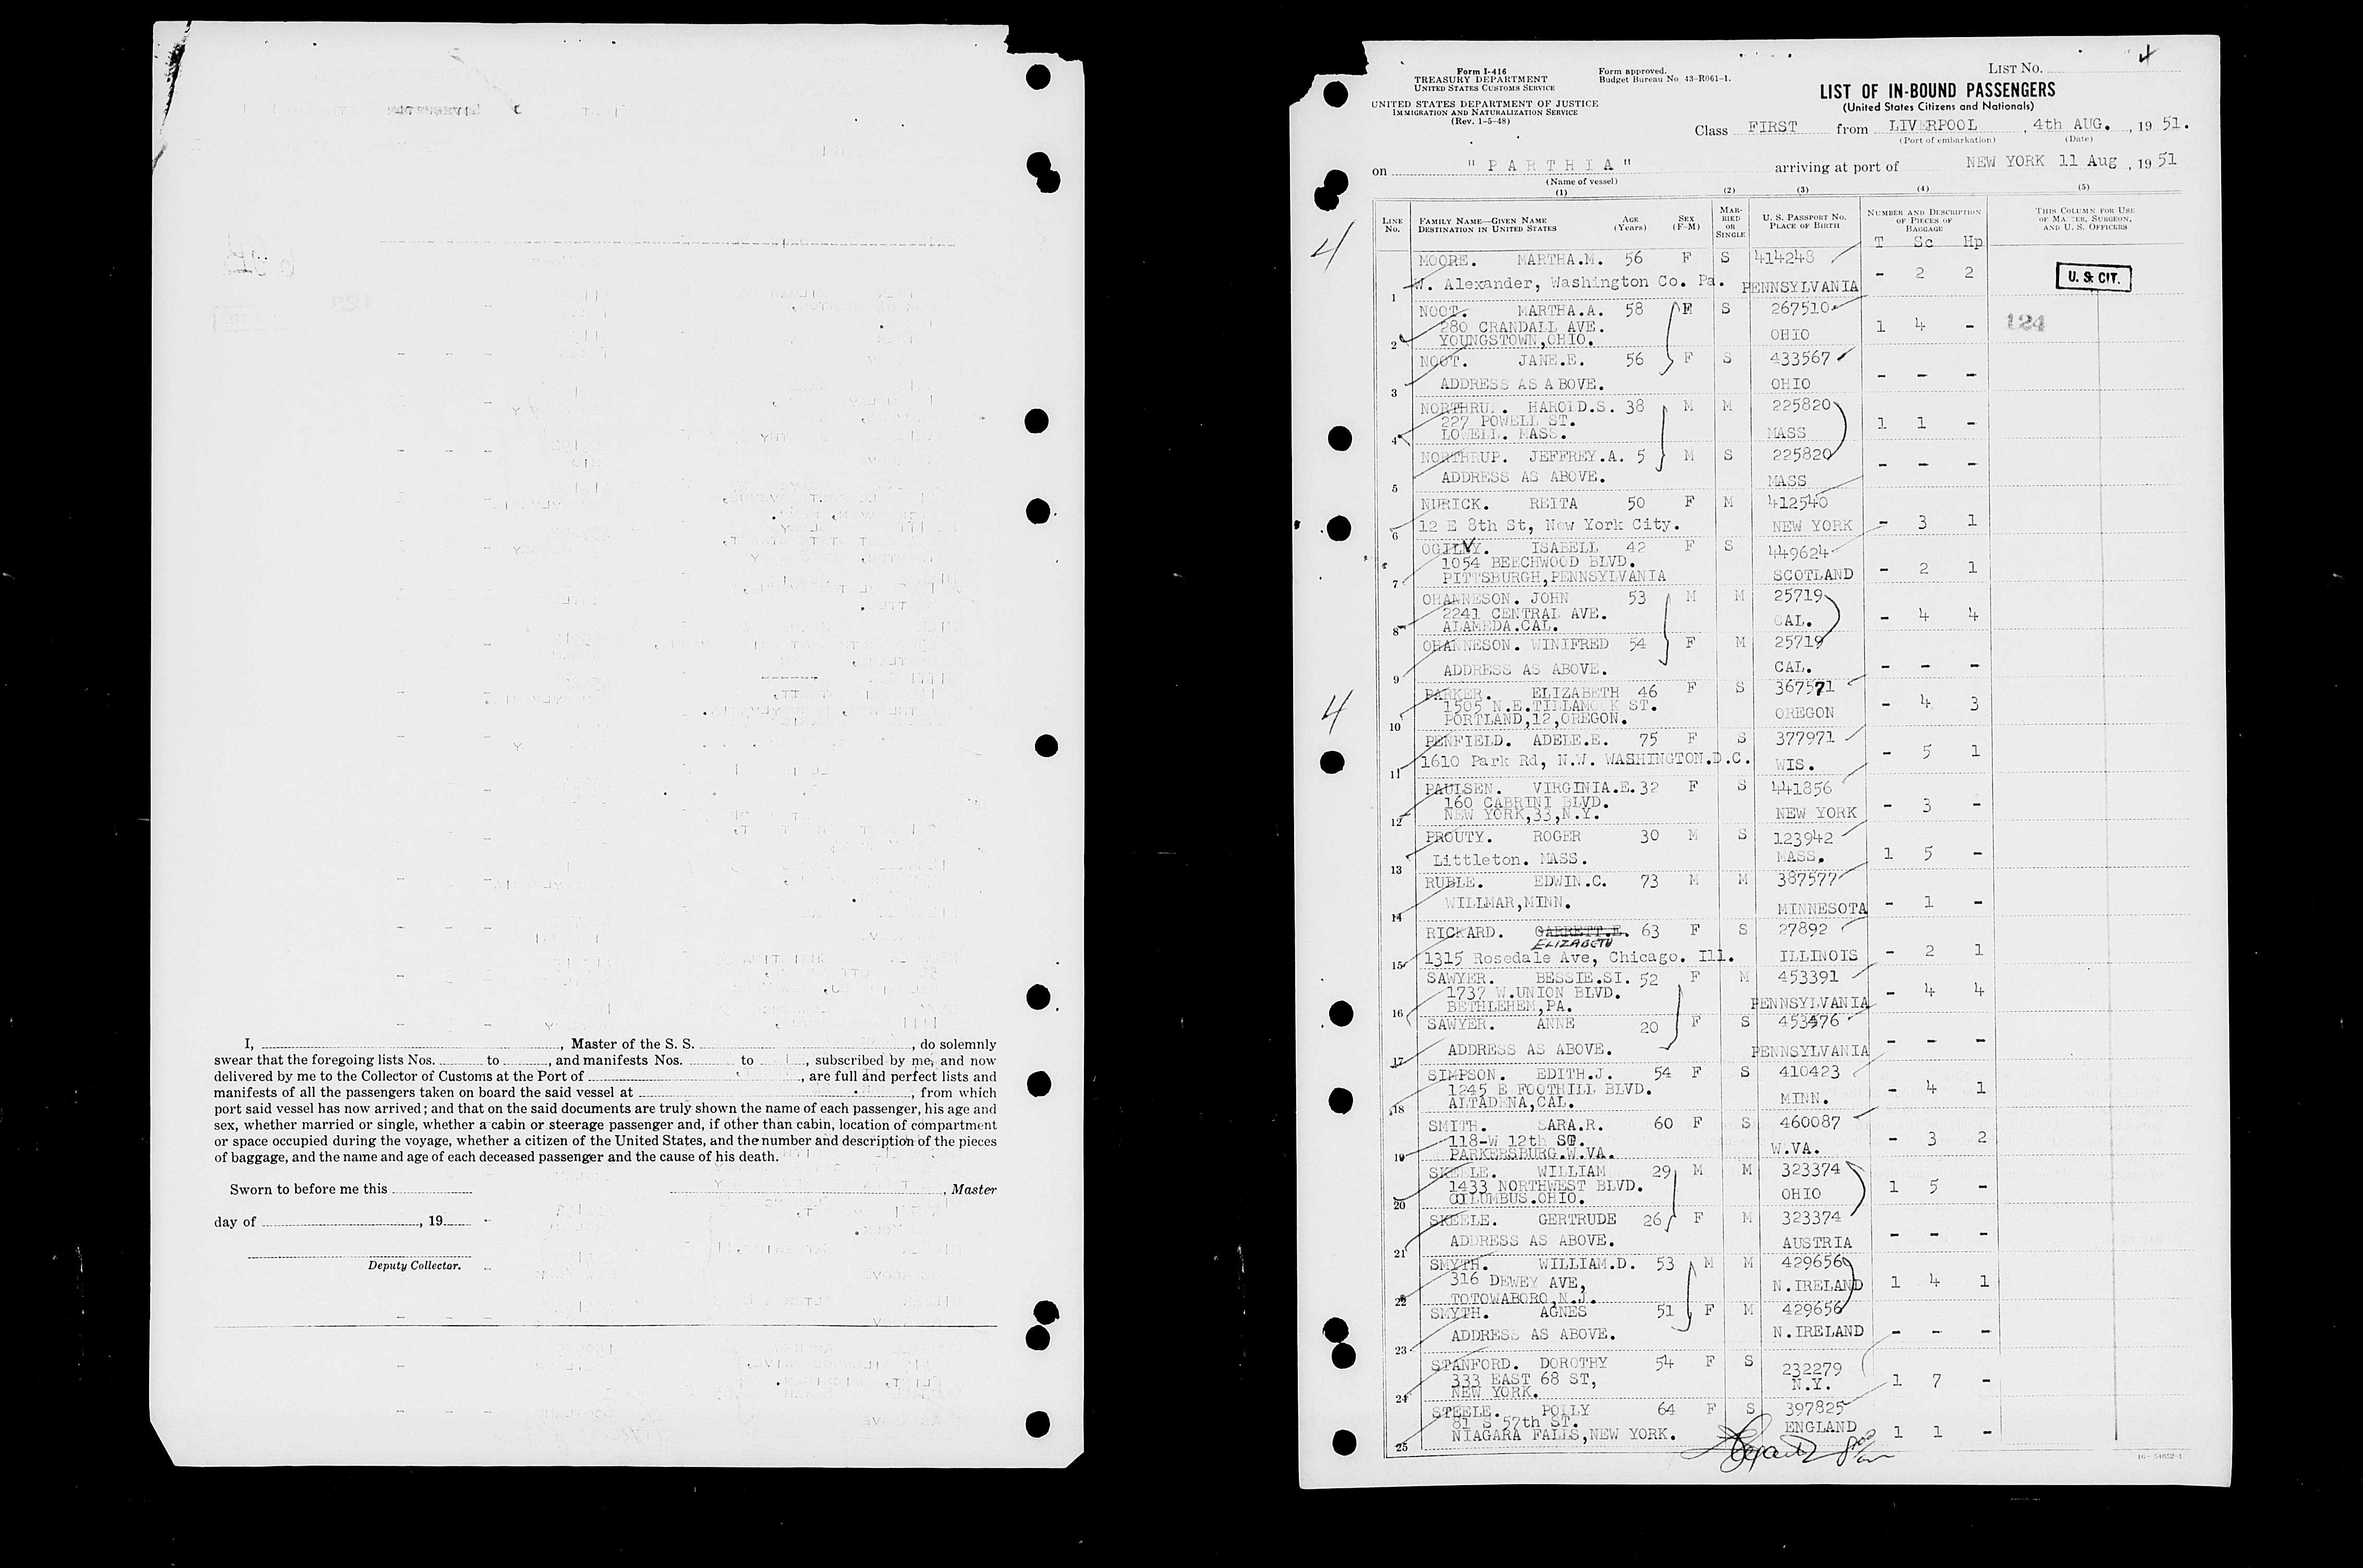 I, , Master of the S. S. , do solemnly
swear that the foregoing lists Nos. to , and manifests Nos. to , subscribed by me, and now
delivered by me to the Collector of Customs at the Port of , are full and perfect lists and
manifests of all the passengers taken on board the said vessel at , from which
port said vessel has now arrived; and that on the said documents are truly shown the name of each passenger, his age and
sex, whether married or single, whether a cabin or steerage passenger and, if other than cabin, location of compartment
or space occupied during the voyage, whether a citizen of the United States, and the number and description of the pieces
of baggage, and the name and age of each deceased passenger and the cause of his death.
Sworn to before me this , Master
day of , 19
Deputy Collector.
Form I-416
TREASURY DEPARTMENT
UNITED STATES CUSTOMS SERVICE
UNITED STATES DEPARTMENT OF JUSTICE
IMMIGRATION AND NATURALIZATION SERVICE
(Rev. 1-5-48)
Form approved.
Budget Bureau No 43-R061-1.
LIST NO. 4
LIST OF IN-BOUND PASSENGERS
(United States Citizens and Nationals)
Class FIRST from LIVERPOOL , 4th AUG. , 19 51.
(Port of embarkation) (Date)
on " P A R T H I A " arriving at port of NEW YORK 11 Aug , 19 51
(Name of vessel)
(1) (2) (3) (4) (5)
LINE No. FAMILY NAME—GIVEN NAME DESTINATION IN UNITED STATES AGE (Years) SEX (F-M) MARRIED OR SINGLE U. S. PASSPORT NO. PLACE OF BIRTH NUMBER AND DESCRIPTION OF PIECES OF BAGGAGE THIS COLUMN FOR USE OF MASTER, SURGEON, AND U. S. OFFICERS
T Sc Hp
4
MOORE. MARTHA.M. 56 F S 414248
1 W. Alexander, Washington Co. Pa. PENNSYLVANIA - 2 2 U. S. CIT.
NOOT. MARTHA.A. 58 F S 267510
280 CRANDALL AVE. 1 4 - 124
2 YOUNGSTOWN,OHIO. OHIO
NOOT. JANE.E. 56 F S 433567
3 ADDRESS AS ABOVE. OHIO - - -
NORTHRUP. HAROLD.S. 38 M M 225820
227 POWELL ST. 1 1 -
4 LOWELL. MASS. MASS
NORTHRUP. JEFFREY.A. 5 M S 225820
5 ADDRESS AS ABOVE. MASS - - -
NURICK. REITA 50 F M 412540
6 12 E 8th St, New York City. NEW YORK - 3 1
OGILVY. ISABELL 42 F S 449624
1054 BEECHWOOD BLVD.
7 PITTSBURGH,PENNSYLVANIA SCOTLAND - 2 1
OHANNESON. JOHN 53 M M 25719
2241 CENTRAL AVE.
8 ALAMEDA.CAL. CAL. - 4 4
OHANNESON. WINIFRED 54 F M 25719
9 ADDRESS AS ABOVE. CAL. - - -
4
PARKER. ELIZABETH 46 F S 367571
1505 N.E.TILLAMOOK ST.
10 PORTLAND,12,OREGON. OREGON - 4 3
PENFIELD. ADELE.E. 75 F S 377971
11 1610 Park Rd, N.W. WASHINGTON.D.C. WIS. - 5 1
PAULSEN. VIRGINIA.E. 32 F S 441856
160 CABRINI BLVD.
12 NEW YORK,33,N.Y. NEW YORK - 3 -
PROUTY. ROGER 30 M S 123942
13 Littleton. MASS. MASS. 1 5 -
RUBLE. EDWIN.C. 73 M M 387577
14 WILLMAR,MINN. MINNESOTA - 1 -
RICKARD. GARRETT.E. 63 F S 27892
ELIZABETH
15 1315 Rosedale Ave, Chicago. Ill. ILLINOIS - 2 1
SAWYER. BESSIE.SI. 52 F M 453391
1737 W.UNION BLVD.
16 BETHLEHEM,PA. PENNSYLVANIA - 4 4
SAWYER. ANNE 20 F S 453476
17 ADDRESS AS ABOVE. PENNSYLVANIA - - -
SIMPSON. EDITH.J. 54 F S 410423
1245 E FOOTHILL BLVD.
18 ALTADENA,CAL. MINN. - 4 1
SMITH. SARA.R. 60 F S 460087
118-W 12th ST.
19 PARKERSBURG.W.VA. W.VA. - 3 2
SKEELE. WILLIAM 29 M M 323374
1433 NORTHWEST BLVD.
20 COLUMBUS.OHIO. OHIO 1 5 -
SKEELE. GERTRUDE 26 F M 323374
21 ADDRESS AS ABOVE. AUSTRIA - - -
SMYTH. WILLIAM.D. 53 M M 429656
316 DEWEY AVE,
22 TOTOWABORO,N.J. N.IRELAND 1 4 1
SMYTH. AGNES 51 F M 429656
23 ADDRESS AS ABOVE. N.IRELAND - - -
STANFORD. DOROTHY 54 F S 232279
333 EAST 68 ST,
24 NEW YORK. N.Y. 1 7 -
STEELE. POLLY 64 F S 397825
81 S 57th ST.
25 NIAGARA FALLS,NEW YORK. ENGLAND 1 1 -
16—54652-1